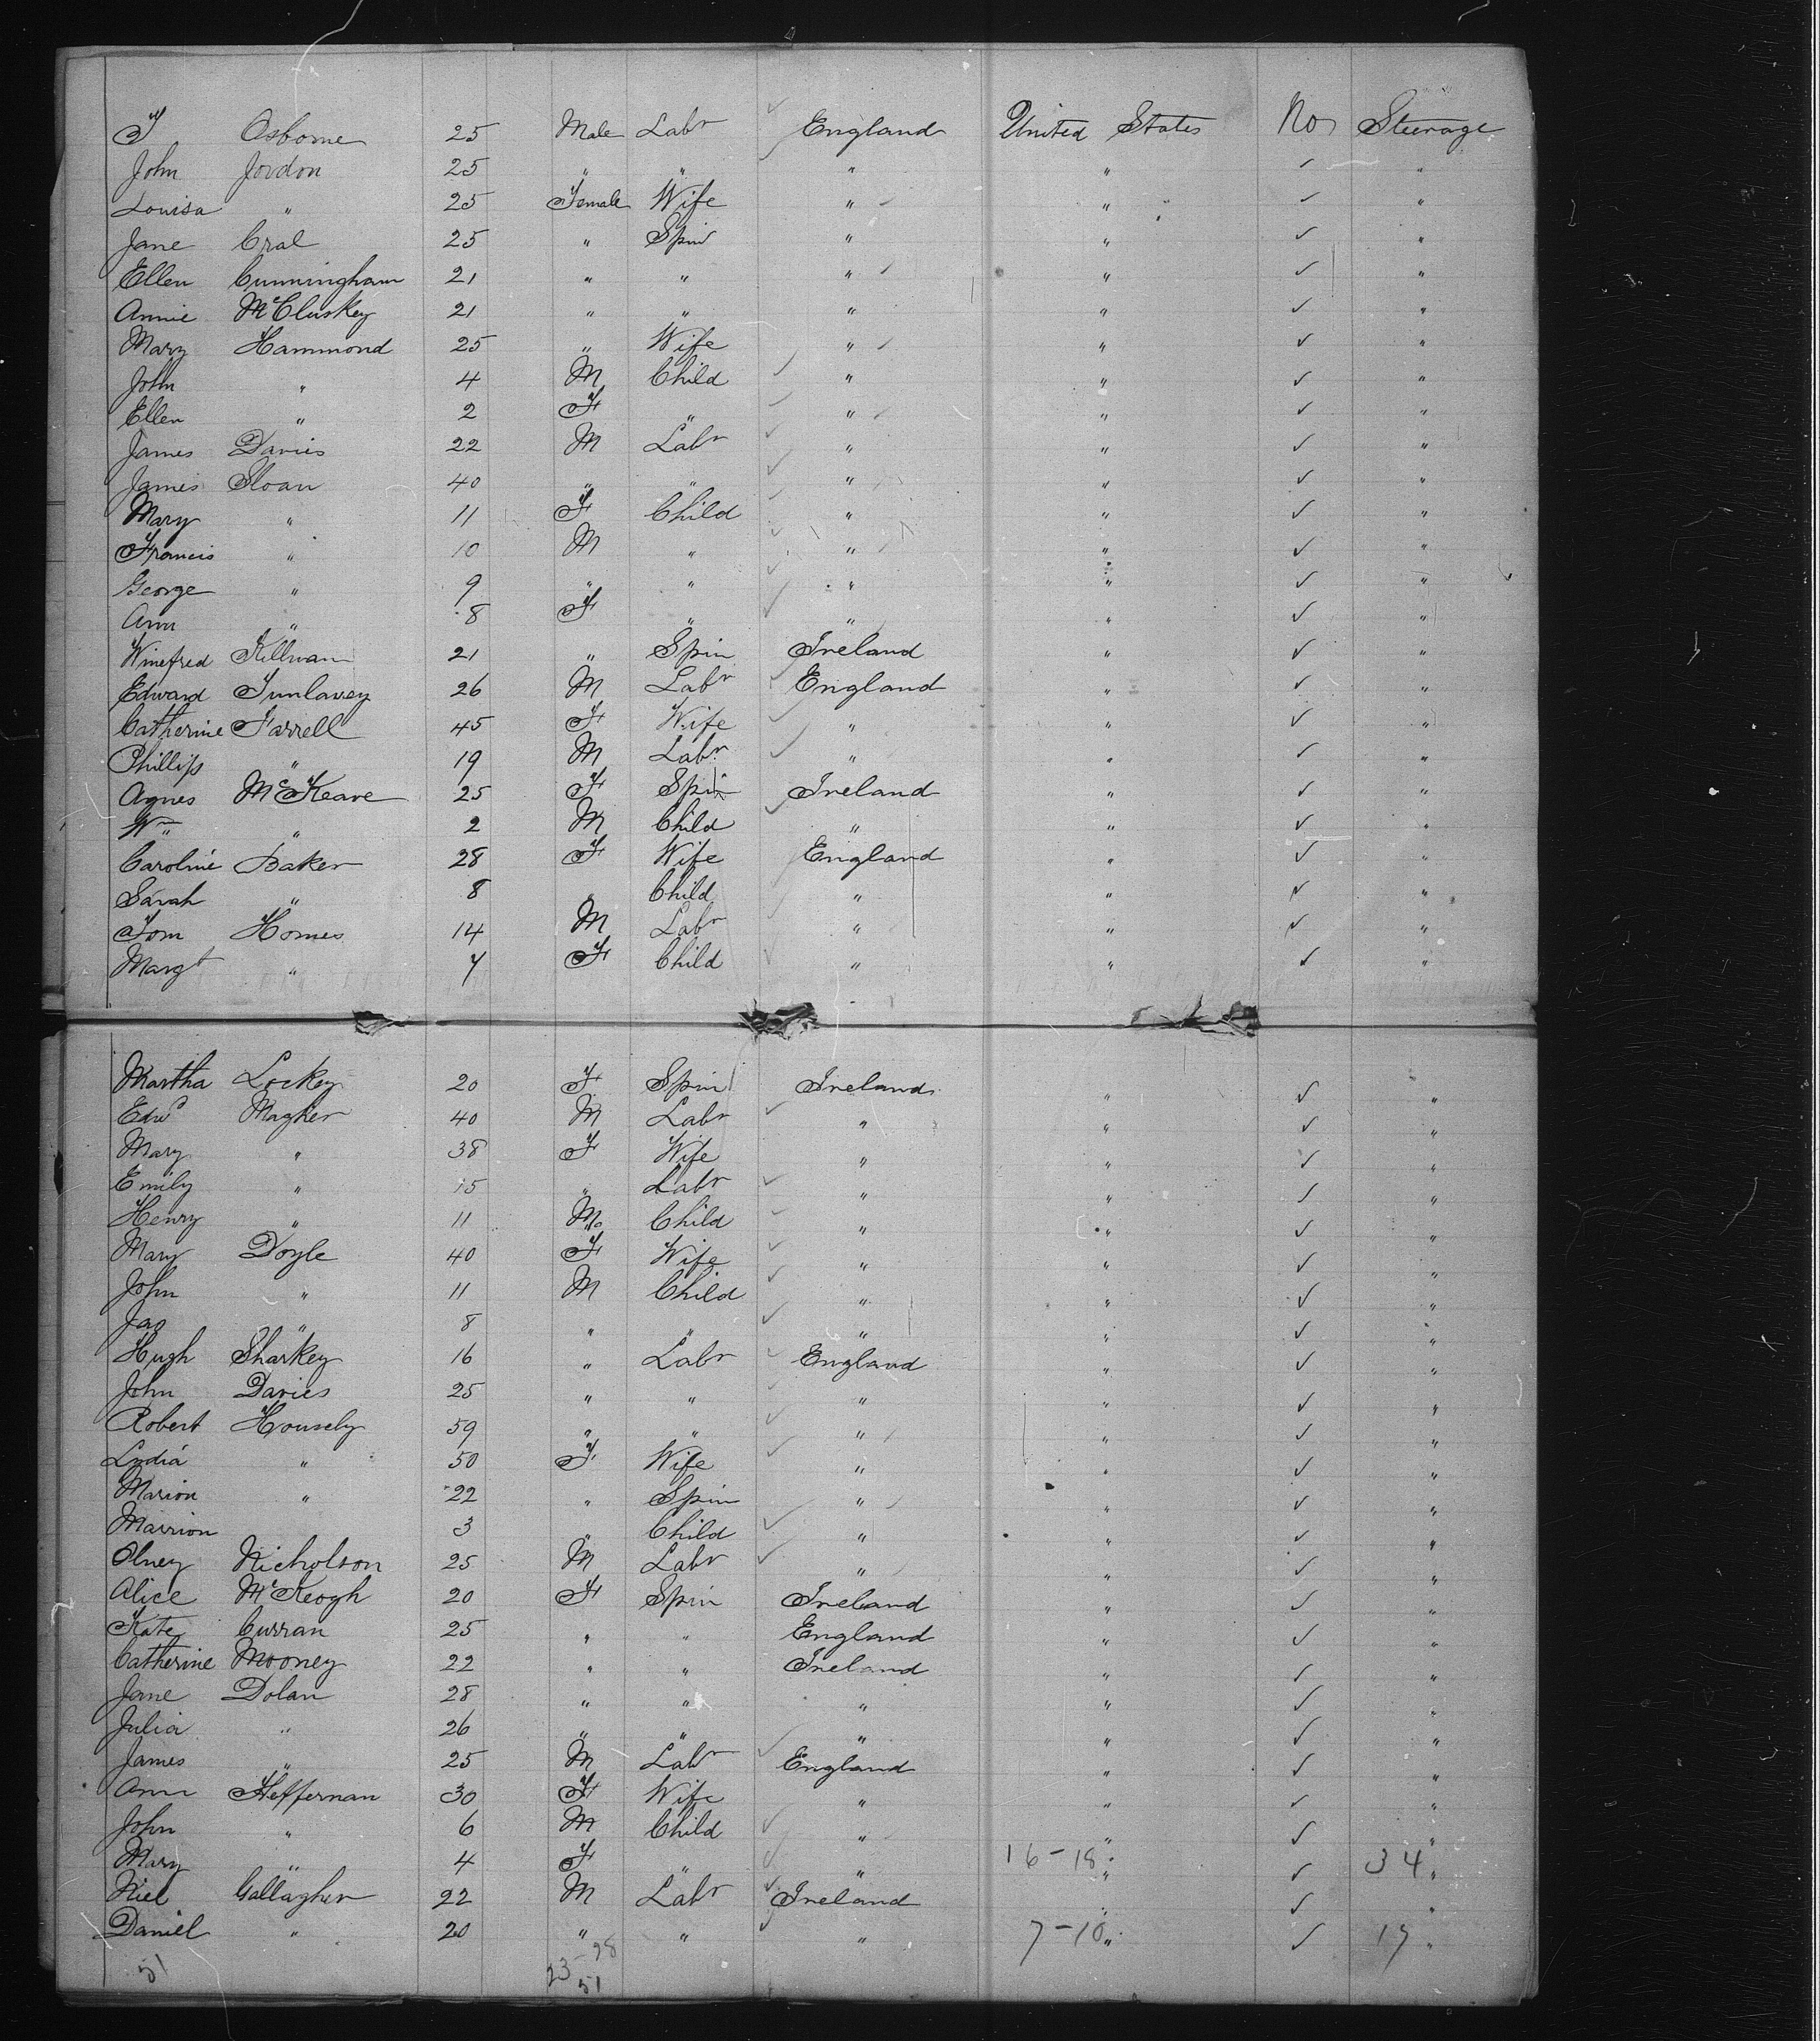 T Osborne 25 Male Labr England United States No Steerage
John Jordon 25 " " " " ✓ "
Louisa " 25 Female Wife " " ✓ "
Jane Cral 25 " Spin " " ✓ "
Ellen Cunningham 21 " " " " ✓ "
Annie McCluskey 21 " " " " ✓ "
Mary Hammond 25 " Wife " " ✓ "
John " 4 M Child " " ✓ "
Ellen " 2 F " " " ✓ "
James Davies 22 M Labr " " ✓ "
James Sloan 40 " " " " ✓ "
Mary " 11 F Child " " ✓ "
Francis " 10 M " " " ✓ "
George " 9 " " " " ✓ "
Ann " 8 F " " " ✓ "
Winefred Killwan 21 " Spin Ireland " ✓ "
Edward Tunlavey 26 M Labr England " ✓ "
Catherine Farrell 45 F Wife " " ✓ "
Phillip " 19 M Labr " " ✓ "
Agnes McKeave 25 F Spin Ireland " ✓ "
Wm " 2 M Child " " ✓ "
Caroline Baker 28 F Wife England " ✓ "
Sarah " 8 " Child " " ✓ "
Tom Homes 14 M Labr " " ✓ "
Margt " 7 F Child " " ✓ "
Martha Lockey 20 F Spin Ireland " ✓ "
Edwd Magher 40 M Labr " " ✓ "
Mary " 38 F Wife " " ✓ "
Emily " 15 " Labr " " ✓ "
Henry " 11 M Child " " ✓ "
Mary Doyle 40 F Wife " " ✓ "
John " 11 M Child " " ✓ "
Jas " 8 " " " " ✓ "
Hugh Sharkey 16 " Labr England " ✓ "
John Davies 25 " " " " ✓ "
Robert Housely 59 " " " " ✓ "
Lydia " 50 F Wife " " ✓ "
Marion " 22 " Spin " " ✓ "
Marrion 3 " Child " " ✓ "
Olney Nicholson 25 M Labr " " ✓ "
Alice McKeogh 20 F Spin Ireland " ✓ "
Kate Curran 25 " " England " ✓ "
Catherine Mooney 22 " " Ireland " ✓ "
Jane Dolan 28 " " " " ✓ "
Julia " 26 " " " " ✓ "
James " 25 M Labr England " ✓ "
Ann Heffernan 30 F Wife " " ✓ "
John " 6 M Child " " ✓ "
Mary " 4 F " " 16-18 " ✓ 34 "
Niel Gallagher 22 M Labr Ireland " ✓ "
Daniel " 20 " " " 7-10 " ✓ 17 "
51 23-28
51